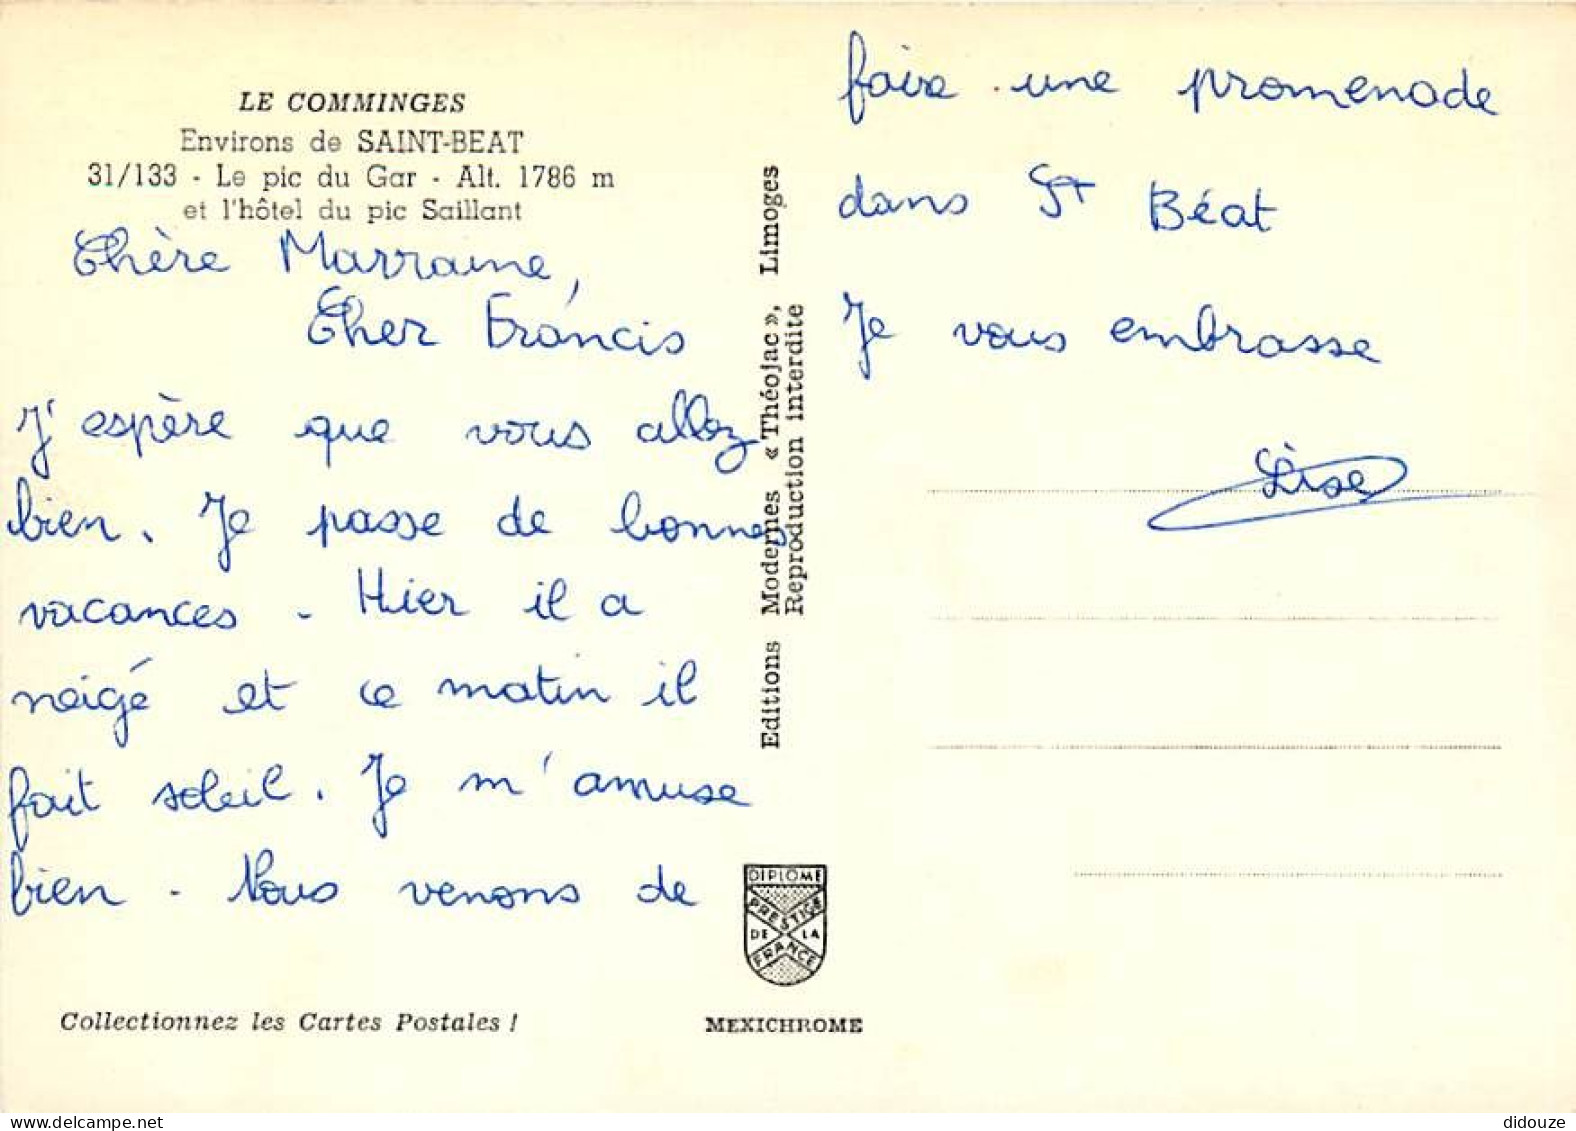 LE COMMINGES
Environs de SAINT-BEAT
31/133 - Le pic du Gar - Alt. 1786 m
et l'hôtel du pic Saillant
Chère Marraine,
Cher Francis
J'espère que vous allez
bien. Je passe de bonnes
vacances - Hier il a
neigé et ce matin il
fait soleil. Je m'amuse
bien - Nous venons de
Collectionnez les Cartes Postales !
Editions Modernes « Théojac », Limoges
Reproduction interdite
DIPLOME
PRESTIGE
DE LA
FRANCE
MEXICHROME
faire une promenade
dans St Béat
Je vous embrasse
Lise
didouze